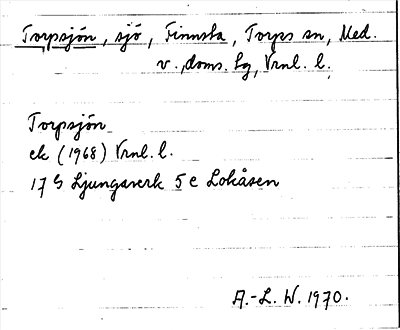 Torpsjön, sjö, Finnsta, Torps sn, Med.
v., doms. tg, Vrnl. l.
Torpsjön
ek (1968) Vrnl. l.
17 G Ljungaverk 5 e Lokåsen
A.-L. W. 1970.